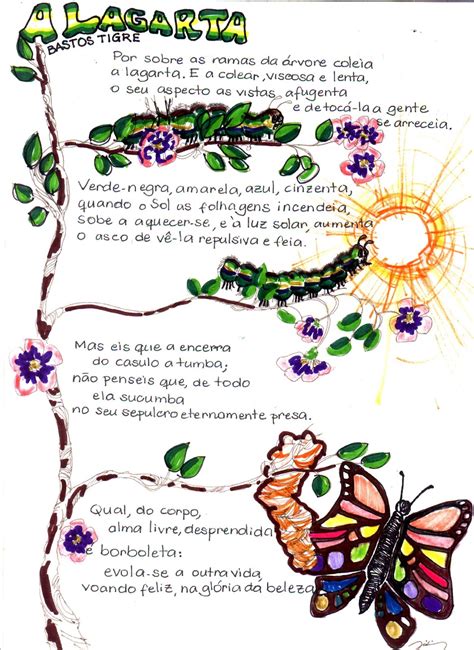 A LAGARTA
BASTOS TIGRE
Por sobre as ramas da árvore coleia
a lagarta. E a colear, viscosa e lenta,
o seu aspecto as vistas afugenta
e de tocá-la a gente
se arreceia.
Verde-negra, amarela, azul, cinzenta,
quando o Sol as folhagens incendeia,
sobe a aquecer-se, e à luz solar, aumenta
o asco de vê-la repulsiva e feia.
Mas eis que a encerra
do casulo a tumba;
não penseis que, de todo
ela sucumba
no seu sepulcro eternamente presa.
Qual, do corpo,
alma livre, desprendida
é borboleta:
evola-se a outra vida,
voando feliz, na glória da beleza